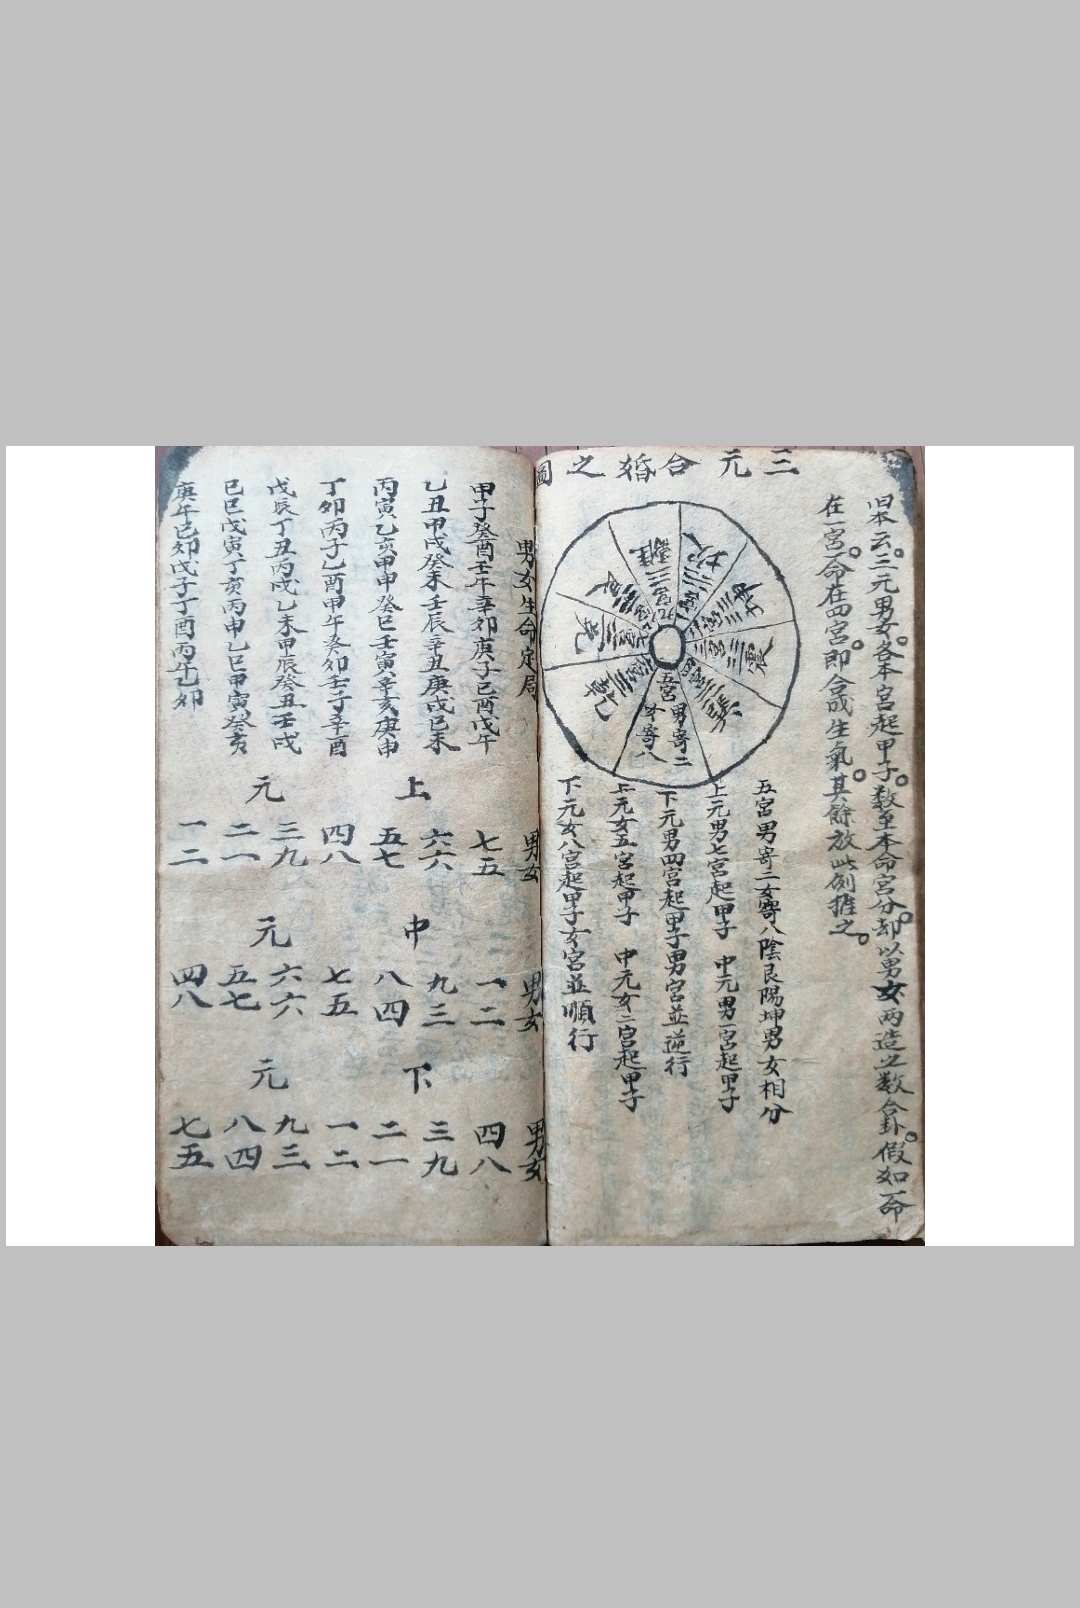 三元合婚之圖
旧本云三元男女各本宮起甲子数至本命宮分却以男女两造之数合卦假如一命
在一宮一命在四宮即合成生氣其餘放此例推之
離
坎
坤
震
巽
五宮男寄二
女寄八
乾
兌
艮
五宮男寄二女寄八陰艮陽坤男女相分
上元男七宮起甲子 中元男一宮起甲子
下元男四宮起甲子男宮並逆行
上元女五宮起甲子 中元女二宮起甲子
下元女八宮起甲子女宮並順行
男女生命定局 男女 男女 男女
甲子癸酉壬午辛卯庚子己酉戊午 七五 一二 四八
乙丑甲戌癸未壬辰辛丑庚戌己未 上 六六 中 九三 下 三九
丙寅乙亥甲申癸巳壬寅辛亥庚申 五七 八四 二一
丁卯丙子乙酉甲午癸卯壬子辛酉 四八 七五 一二
戊辰丁丑丙戌乙未甲辰癸丑壬戌 元 三九 元 六六 元 九三
己巳戊寅丁亥丙申乙巳甲寅癸亥 二一 五七 八四
庚午己卯戊子丁酉丙午乙卯 一二 四八 七五